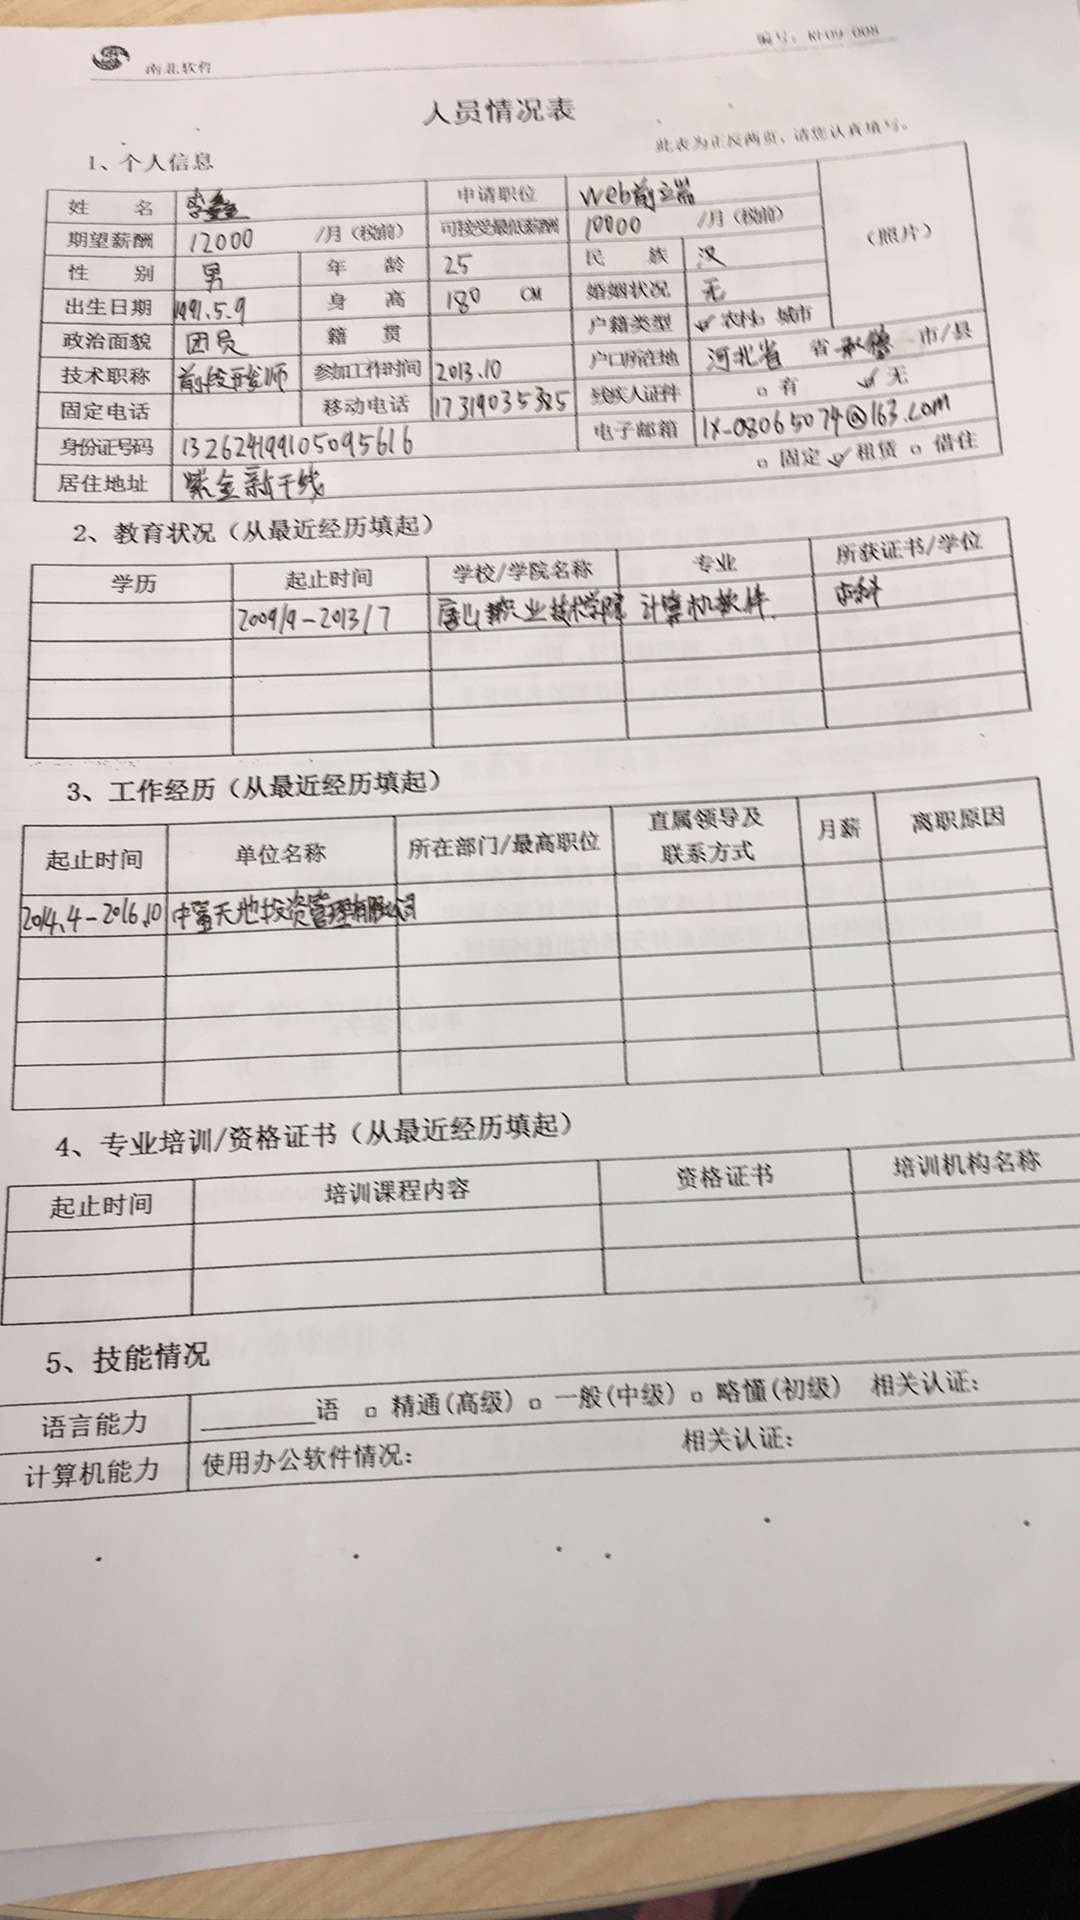 南北软件
编号: RF09-008
人员情况表
此表为正反两页,请您认真填写。
1、个人信息
姓 名 李 申请职位 web前端
期望薪酬 12000 /月(税前) 可接受最低薪酬 10000 /月(税前) (照片)
性 别 男 年 龄 25 民 族 汉
出生日期 1991.5.9 身 高 180 CM 婚姻状况 无
政治面貌 团员 籍 贯 户籍类型 ✓ 农村 城市
技术职称 前段开发师 参加工作时间 2013.10 户口所在地 河北省 省 承德 市/县
固定电话 移动电话 17319035385 残疾人证件 □ 有 ✓ 无
身份证号码 132624199105095616 电子邮箱 lx-08065074@163.com
居住地址 紫金新干线 □ 固定 ✓ 租赁 □ 借住
2、教育状况(从最近经历填起)
学历 起止时间 学校/学院名称 专业 所获证书/学位
2009/9-2013/7 唐山职业技术学院 计算机软件 本科
3、工作经历(从最近经历填起)
起止时间 单位名称 所在部门/最高职位 直属领导及联系方式 月薪 离职原因
2014.4-2016.10 中富天地投资管理有限公司
4、专业培训/资格证书(从最近经历填起)
起止时间 培训课程内容 资格证书 培训机构名称
5、技能情况
语言能力 ______语 □ 精通(高级) □ 一般(中级) □ 略懂(初级) 相关认证:
计算机能力 使用办公软件情况: 相关认证: